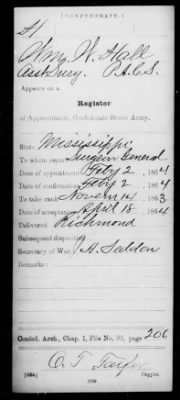 (CONFEDERATE.)
H
Wm. W. Hall
Asst Surg. P.A.C.S.
Appears on a
Register
of Appointments, Confederate States Army.
State Mississippi
To whom report Surgeon General
Date of appointment Feby 2, 1864
Date of confirmation Feby 2, 1864
To take rank Novem 14, 1863
Date of acceptance April 18, 1864
Delivered Richmond
Subsequent disp
Secretary of War J. A. Seddon
Remarks:
Confed. Arch., Chap. 1, File No. 93, page 206
O. T. Taylor
Copyist.